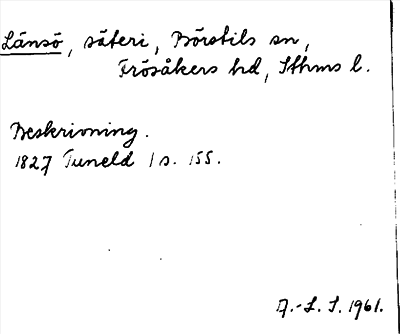 Länsö, säteri, Börstils sn,
Frösåkers hd, Sthms l.
Beskrivning.
1827 Tuneld I s. 155.
A.-L. S. 1961.